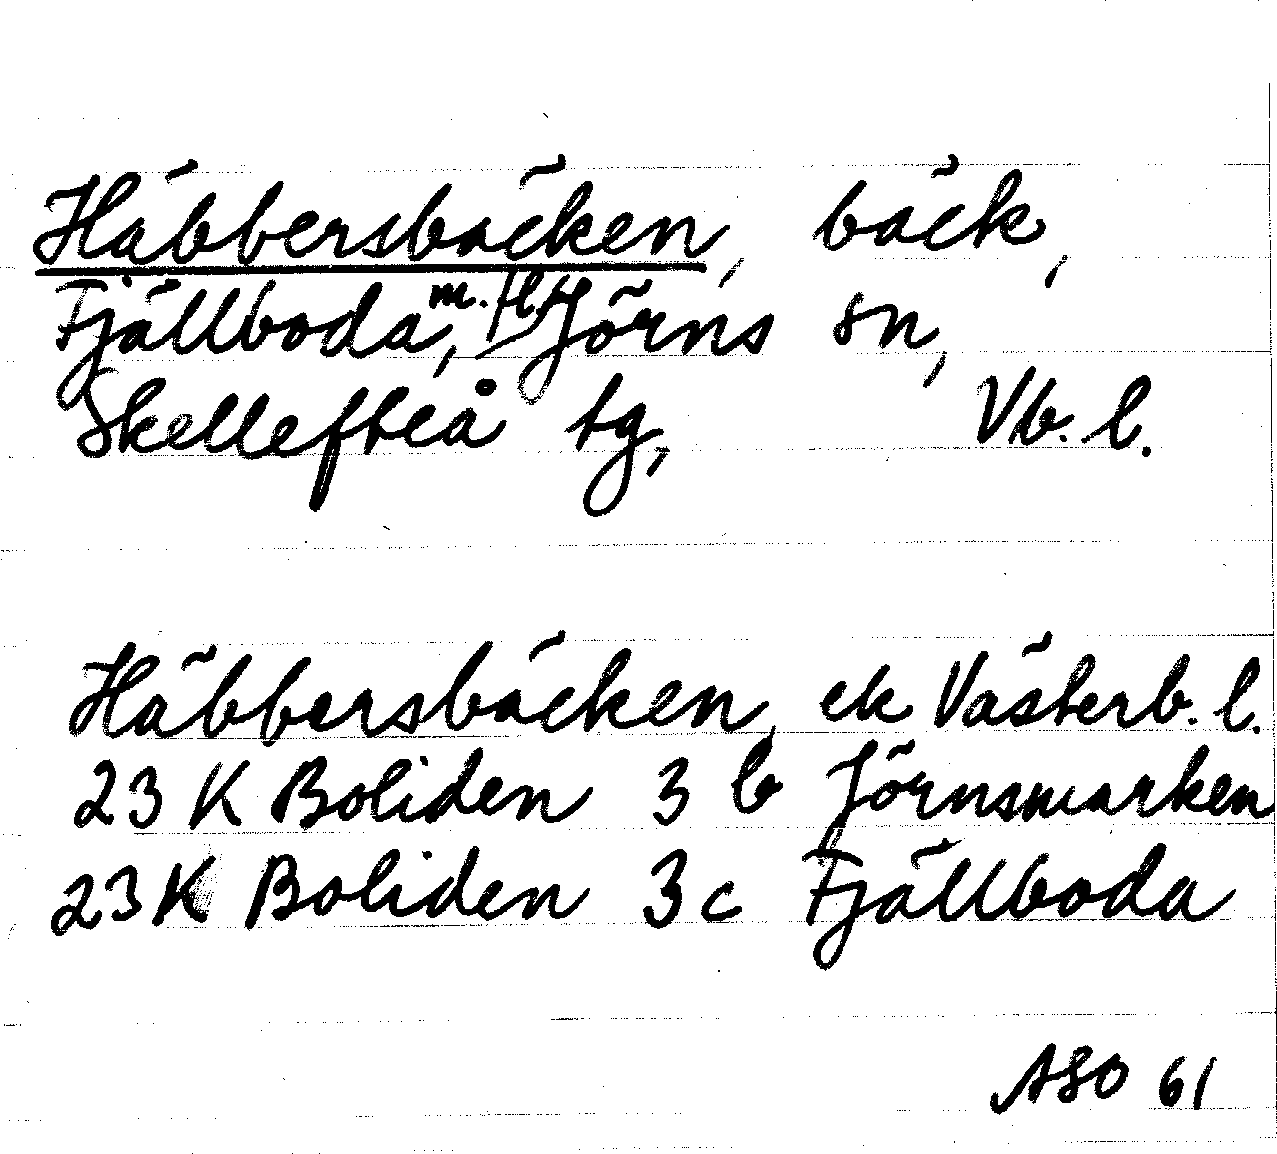 Häbbersbäcken, bäck,
Fjällboda m. fl., Jörns sn,
Skellefteå tg, Vb. l.
Häbbersbäcken, ek Västerb. l.
23 K Boliden 3 b Jörnsmarken
23 K Boliden 3 c Fjällboda
ASO 61